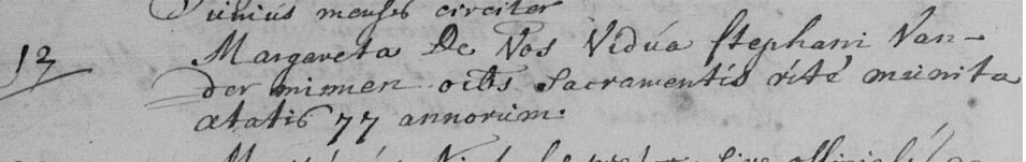 unius menses circiter
13 Margareta De Vos Vidua Stephani Van-
der mimen oibs Sacramentis rité munita
ætatis 77 annorum.